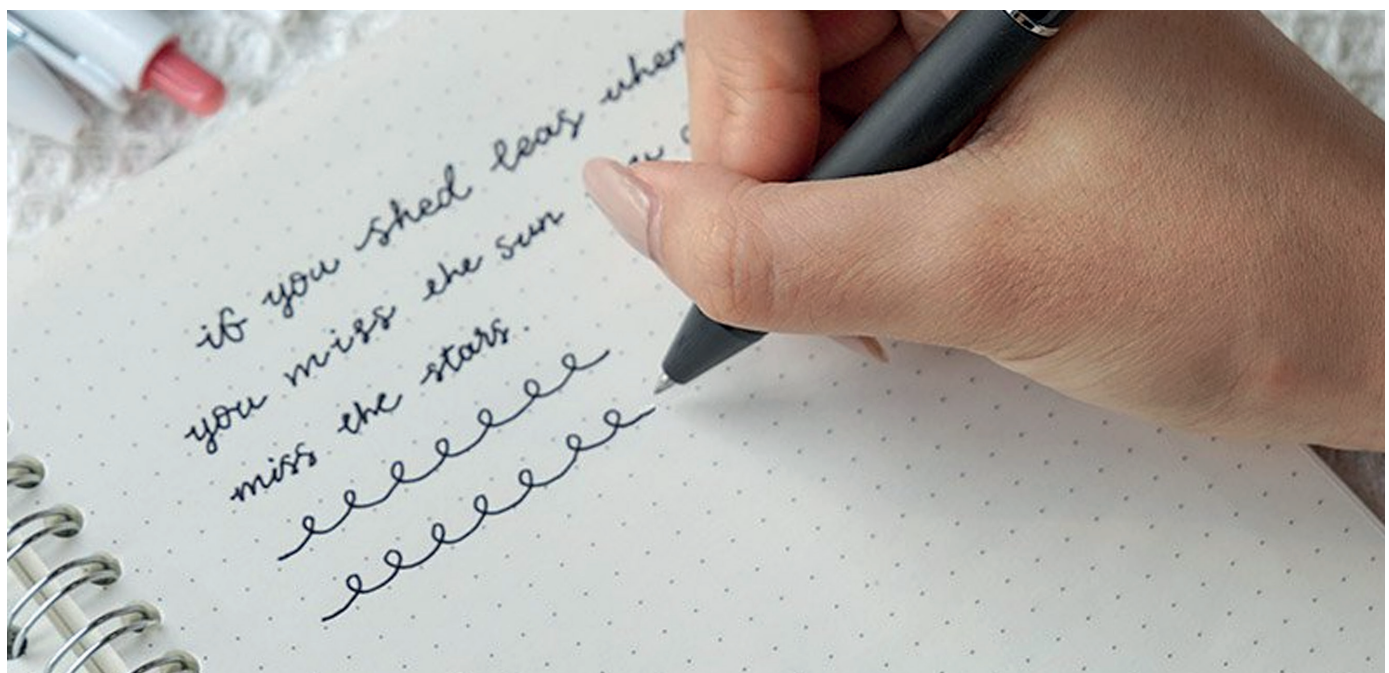 if you shed teas when
you miss the sun
miss the stars.